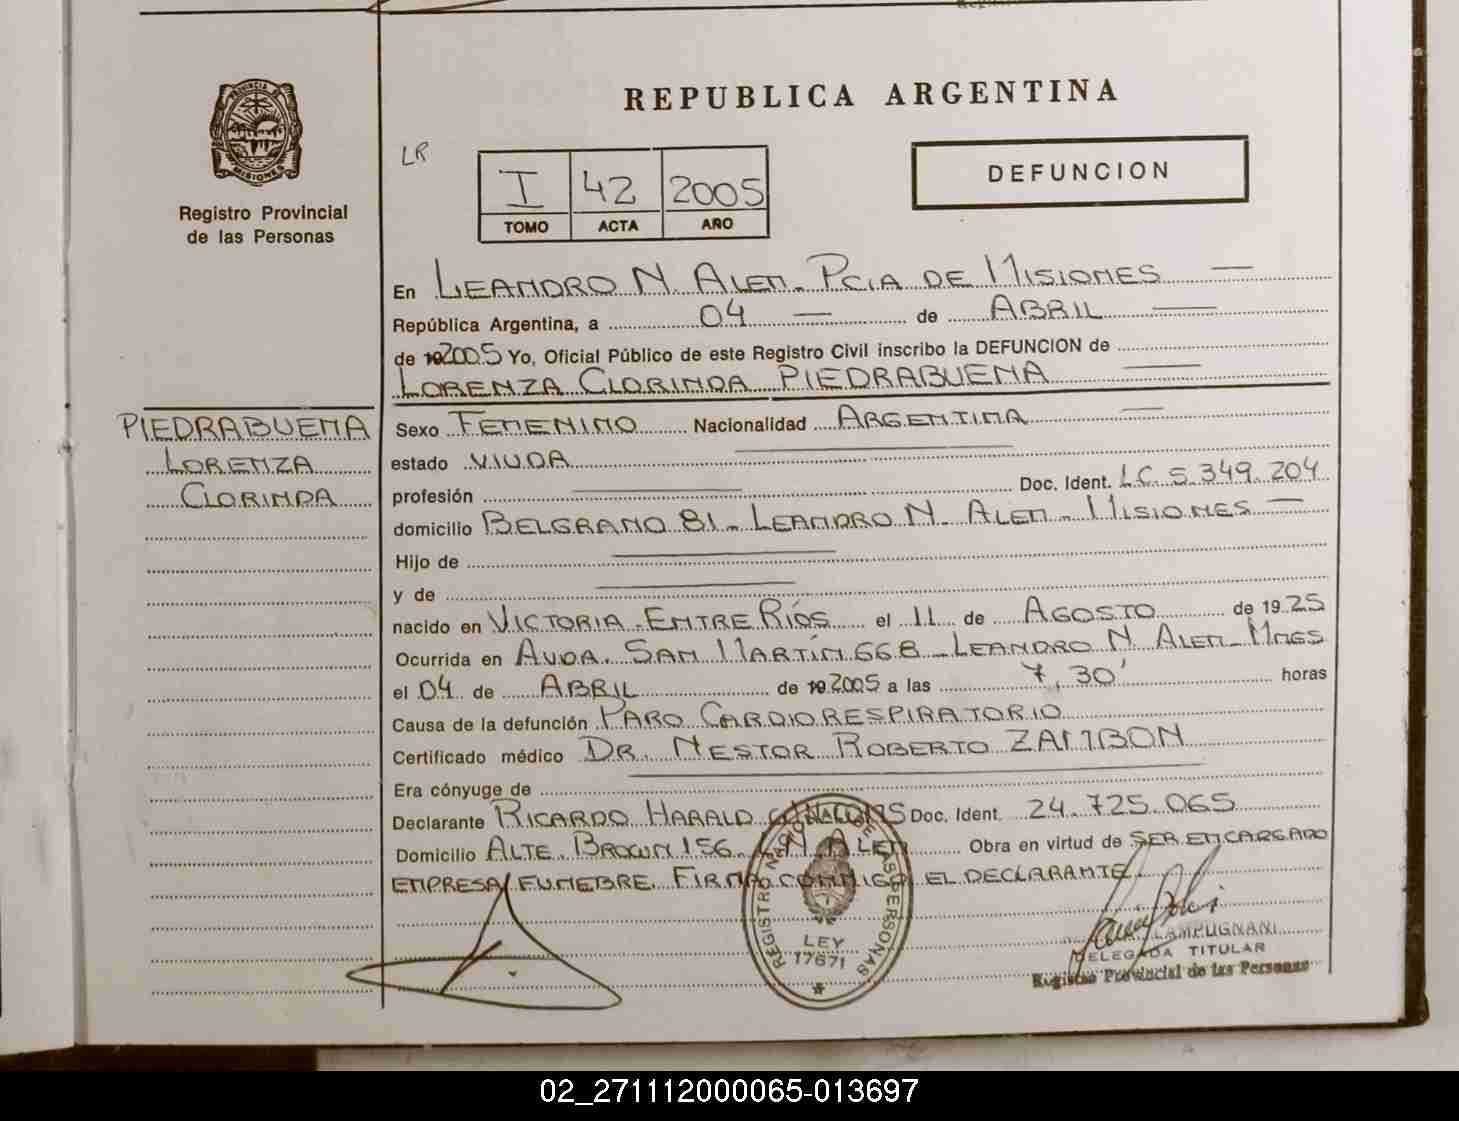 REPUBLICA ARGENTINA
PROVINCIA DE
MISIONES
Registro Provincial
de las Personas
LR
I 42 2005
TOMO ACTA AÑO
DEFUNCION
En LEANDRO N. ALEM - PCIA DE MISIONES
República Argentina, a 04 de ABRIL
de 192005 Yo, Oficial Público de este Registro Civil inscribo la DEFUNCION de
LORENZA CLORINDA PIEDRABUENA
PIEDRABUENA
LORENZA
CLORINDA
Sexo FEMENINO Nacionalidad ARGENTINA
estado VIUDA
profesión Doc. Ident. LC. 5.349.204
domicilio BELGRANO 81 - LEANDRO N. ALEM - MISIONES
Hijo de
y de
nacido en VICTORIA - ENTRE RÍOS el 11 de AGOSTO de 1925
Ocurrida en AVDA. SAN MARTÍN 668 - LEANDRO N. ALEM - MNES
el 04 de ABRIL de 192005 a las 7,30' horas
Causa de la defunción PARO CARDIORESPIRATORIO
Certificado médico DR. NESTOR ROBERTO ZAMBON
Era cónyuge de
Declarante RICARDO HARALD Doc. Ident. 24.725.065
Domicilio ALTE. BROWN 156 - L.N. ALEM Obra en virtud de SER ENCARGADO
EMPRESA FUNEBRE. FIRMA CONMIGO EL DECLARANTE.
REGISTRO NACIONAL DE LAS PERSONAS
LEY
17671
LAMPUGNANI
DELEGADA TITULAR
Registro Provincial de las Personas
02_271112000065-013697